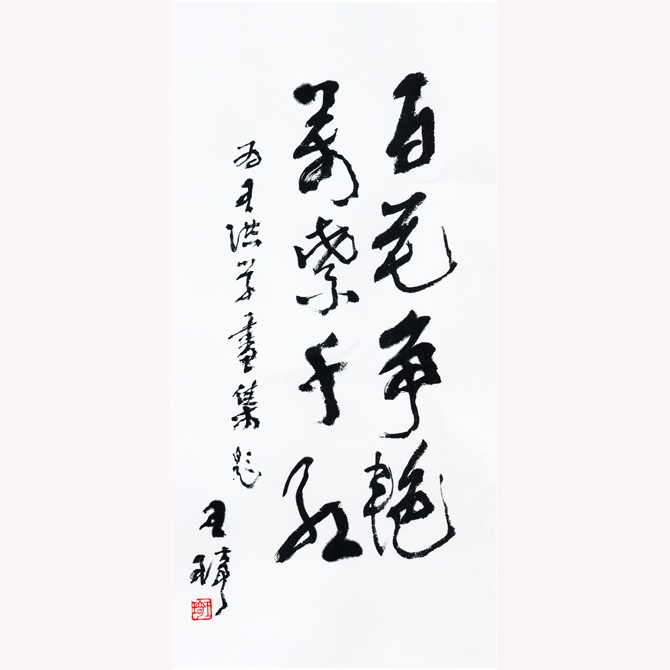 百花争艳
万紫千红
为王洪学画集题
王琦